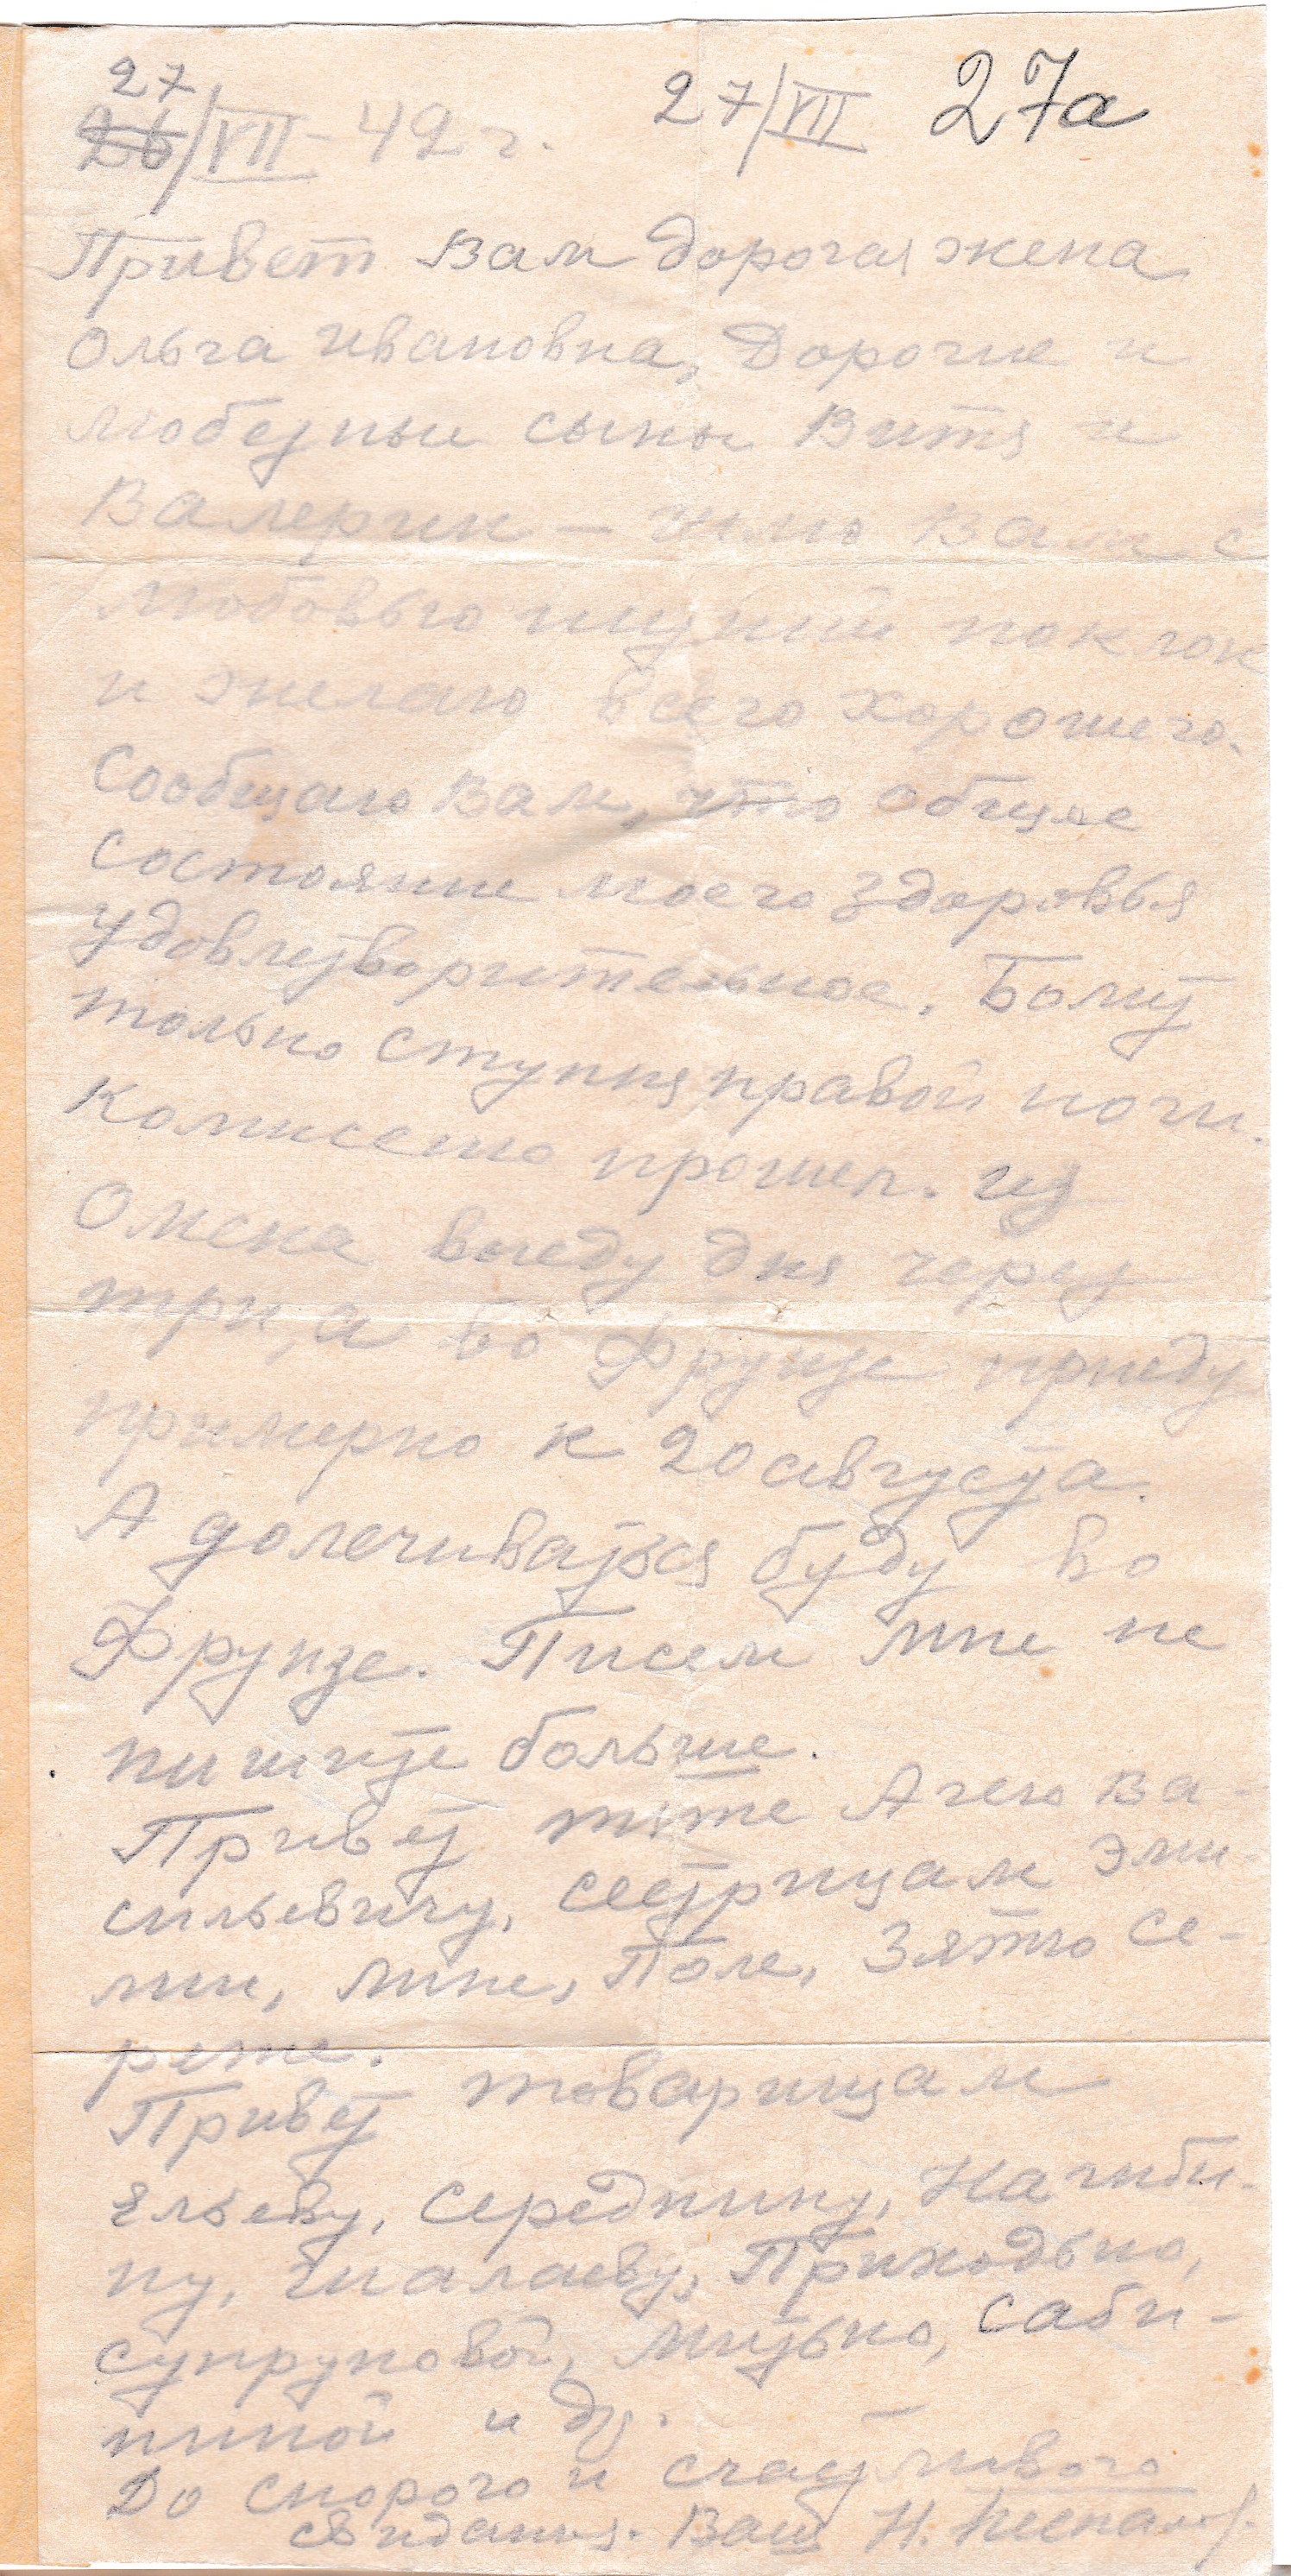 27
26/VII-42 г. 27/VII 27а
Привет Вам дорогая жена
Ольга Ивановна, Дорогие и
любезные сыны Витя и
Валерик — шлю Вам с
любовью низкий поклон
и желаю всего хорошего.
Сообщаю Вам, что общее
состояние моего здоровья
удовлетворительное. Болит
только ступня правой ноги.
Комиссию прошел. Из
Омска выеду дня через
три, а во Фрунзе приеду
примерно к 20 августа.
А долечиваться буду во
Фрунзе. Писем мне не
пишите больше.
Привет тяте Ва-
сильевичу, сестрицам Эми-
лии, Поле, Зятю Се-
реже.
Привет товарищам
Ельеву, Середнину, Нагиби-
ну, Шалаеву, Приходько,
Супруновой, Саби-
ниной и др.
До скорого и счастливого
свидания. Ваш Н.